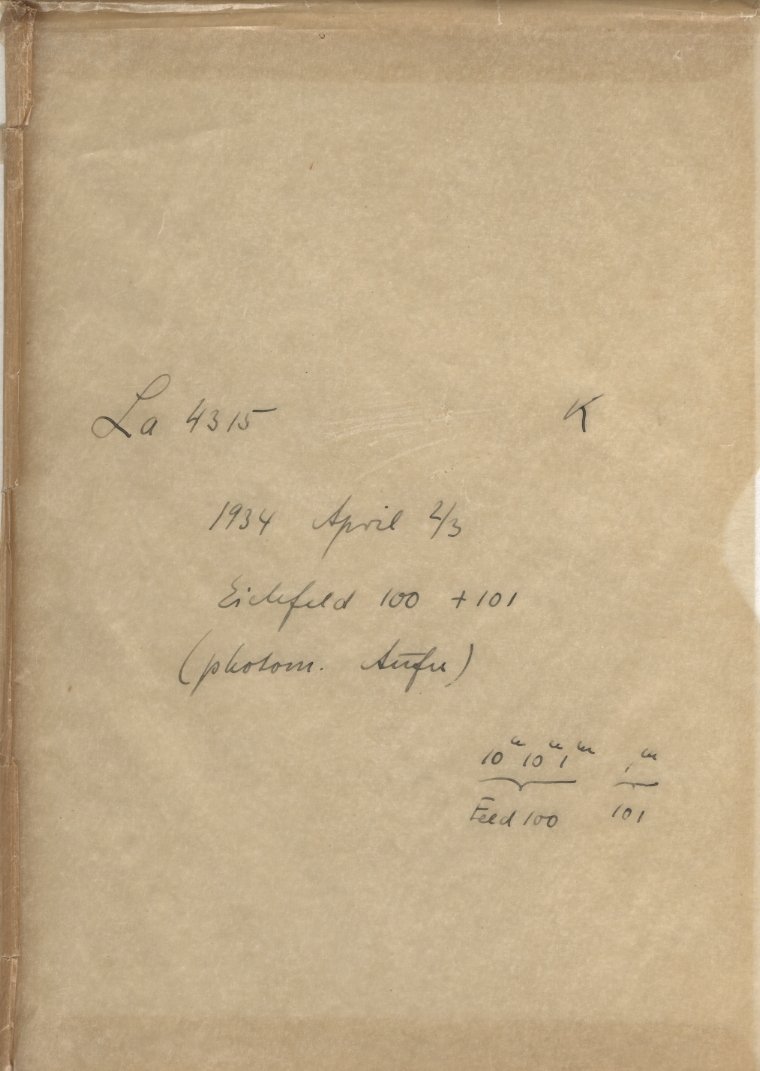 La 4315 K
1934 April 2/3
Eichfeld 100 + 101
(photom. Aufn)
10ᵐ 10ᵐ 1ᵐ 1ᵐ
Feld 100 101